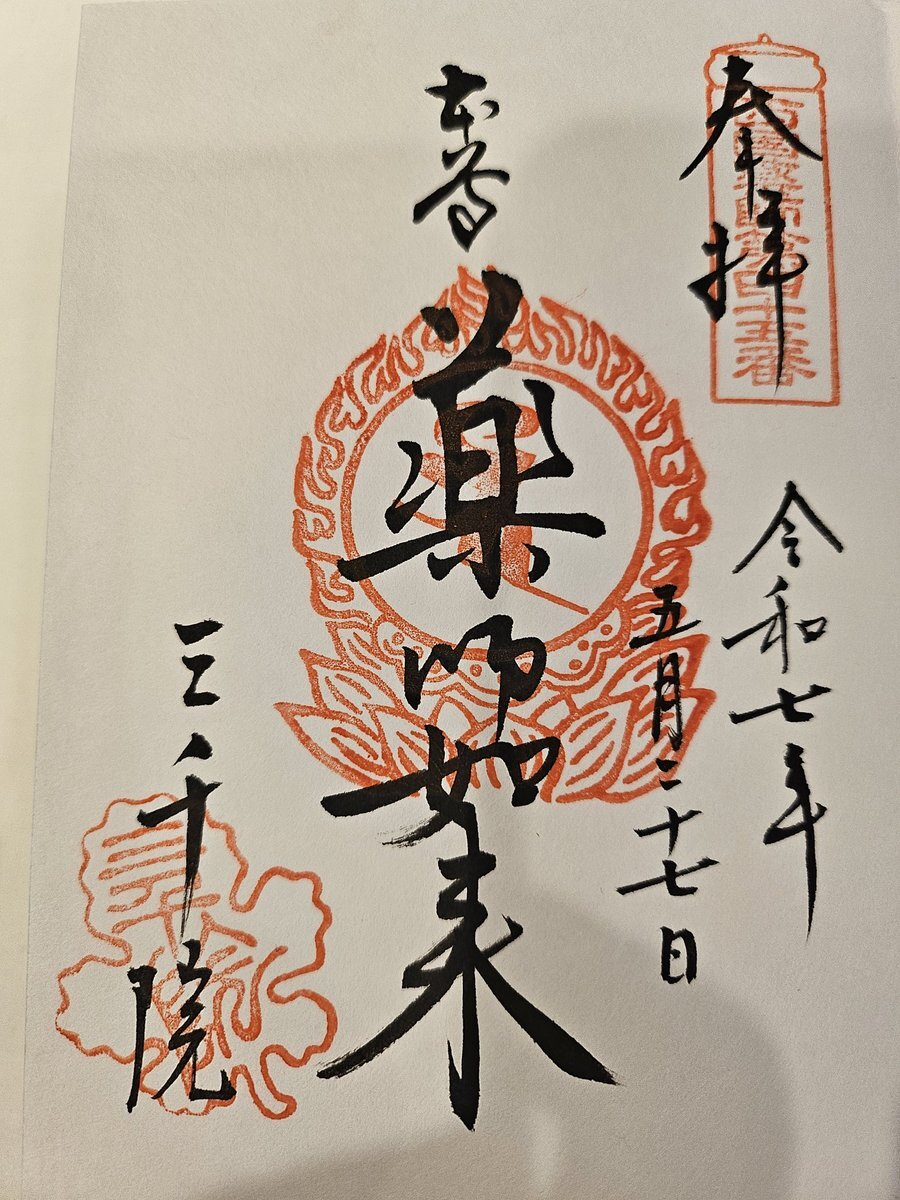 奉拝
西國薬師第四十五番
令和七年
五月二十七日
本尊
薬師如来
三千院